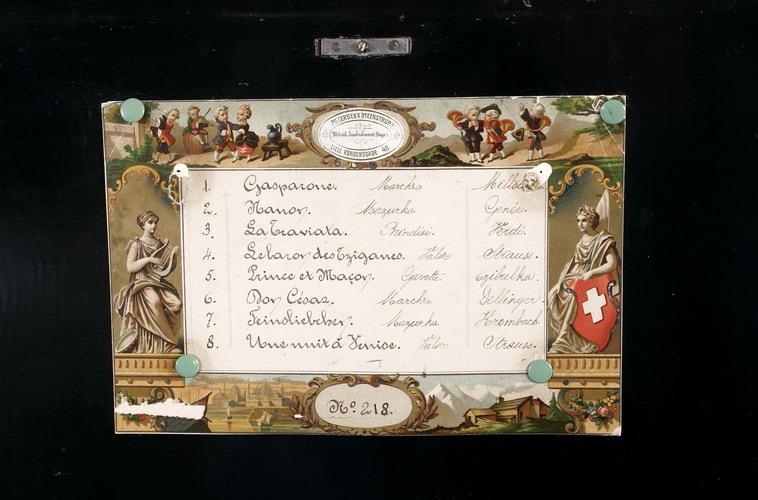 PETERSEN & STEENSTRUP'S
Musik Instrument Lager
LILLE KONGENSGADE 40
1. Gasparone. Marche
2. Nanon. Mazurka Genée.
3. La Traviata. Brindisi. Verdi.
4. Le baron des Tziganes. Valse Strauss.
5. Prince et Maçon. Gavotte Czibulka.
6. Don Césaz. Marche Dellinger.
7. Feinsliebchen. Mazurka Hrombach.
8. Une nuit à Venise. Valse Strauss.
No. 218.